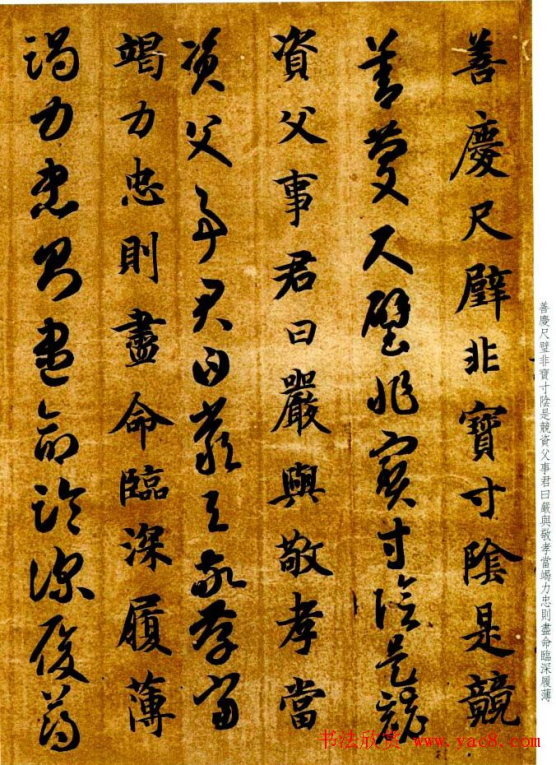 善慶尺璧非寶寸陰是競資父事君曰嚴與敬孝當竭力忠則盡命臨深履薄
善慶尺璧非寶寸陰是競
善慶尺璧非寶寸陰是競
資父事君曰嚴與敬孝當
資父事君曰嚴與敬孝當
竭力忠則盡命臨深履薄
竭力忠則盡命臨深履薄
书法欣赏 www.yac8.com